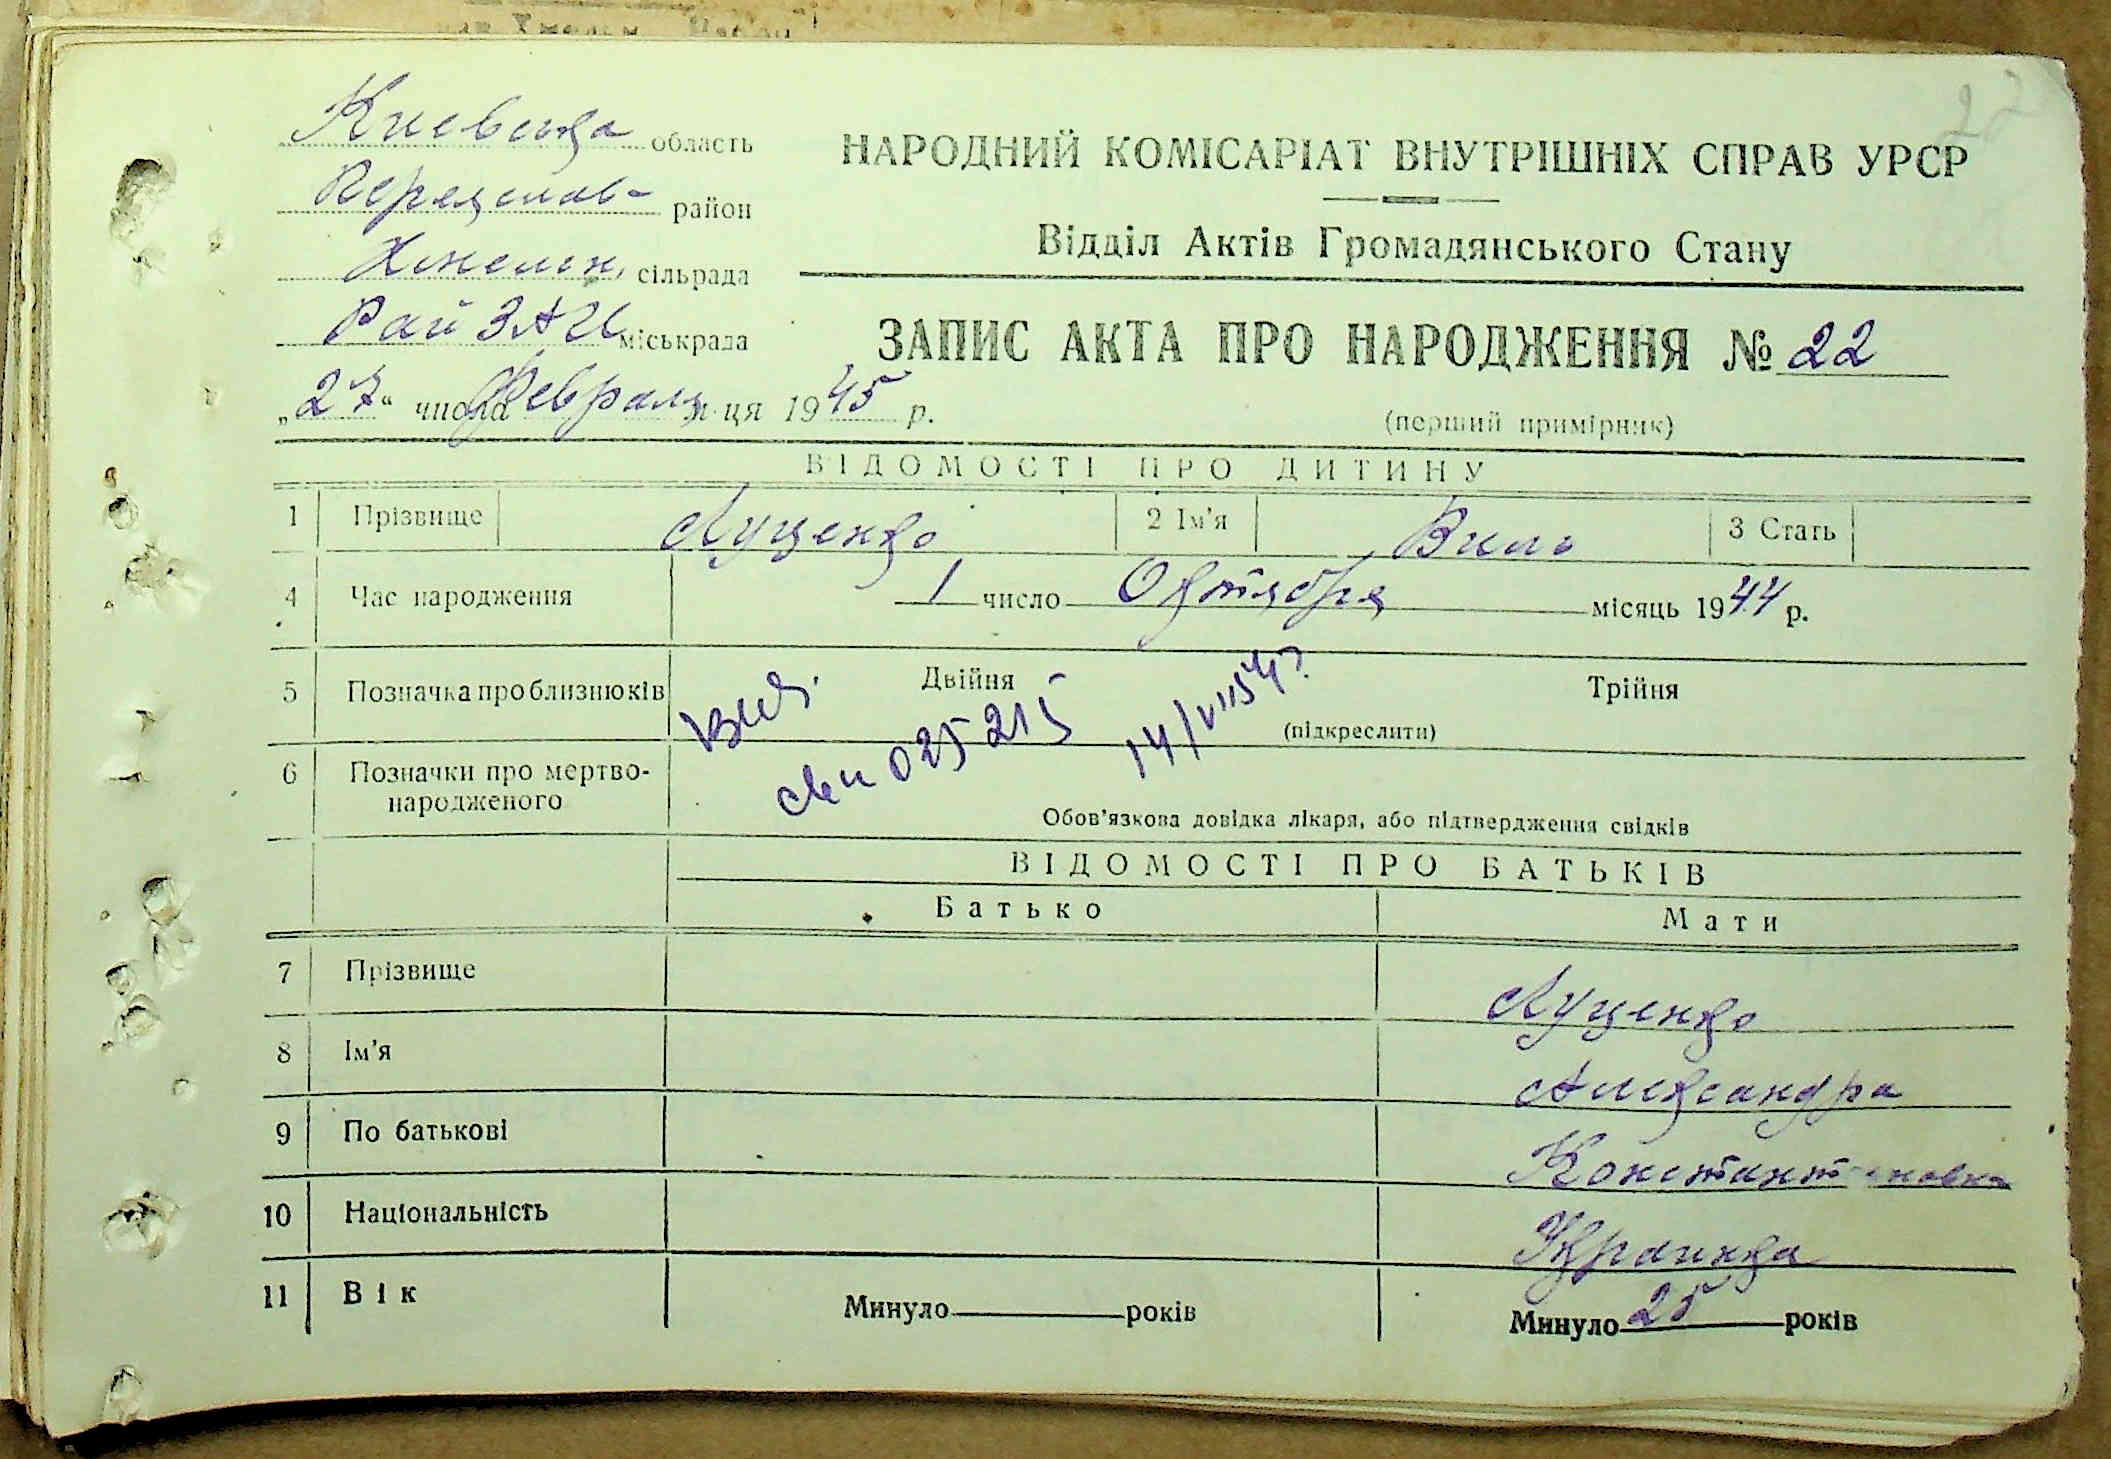 22
Киевська область
НАРОДНИЙ КОМІСАРІАТ ВНУТРІШНІХ СПРАВ УРСР
Переяслав- район
Відділ Актів Громадянського Стану
Хмельн. сільрада
Рай ЗАГС міськрада
ЗАПИС АКТА ПРО НАРОДЖЕННЯ № 22
„27“ числа Февраля м-ця 1945 р.
(перший примірник)
ВІДОМОСТІ ПРО ДИТИНУ
1 Прізвище Луценко 2 Ім'я Виль 3 Стать
4 Час народження 1 число Октября місяць 1944 р.
5 Позначка про близнюків Двійня Трійня
(підкреслити)
Выд. 025215 14/VII 54
6 Позначки про мертво-
народженого
Обов'язкова довідка лікаря, або підтвердження свідків
ВІДОМОСТІ ПРО БАТЬКІВ
Батько Мати
7 Прізвище Луценко
8 Ім'я Александра
9 По батькові Константиновна
10 Національність Украинка
11 Вік Минуло років Минуло 25 років